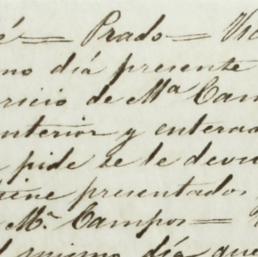 é = Prado = Vic
mo día presente
ricio de Mª Cam
nterior y enterad
pide se le devu
iene presentados
Mr. Campos =
l mismo día que